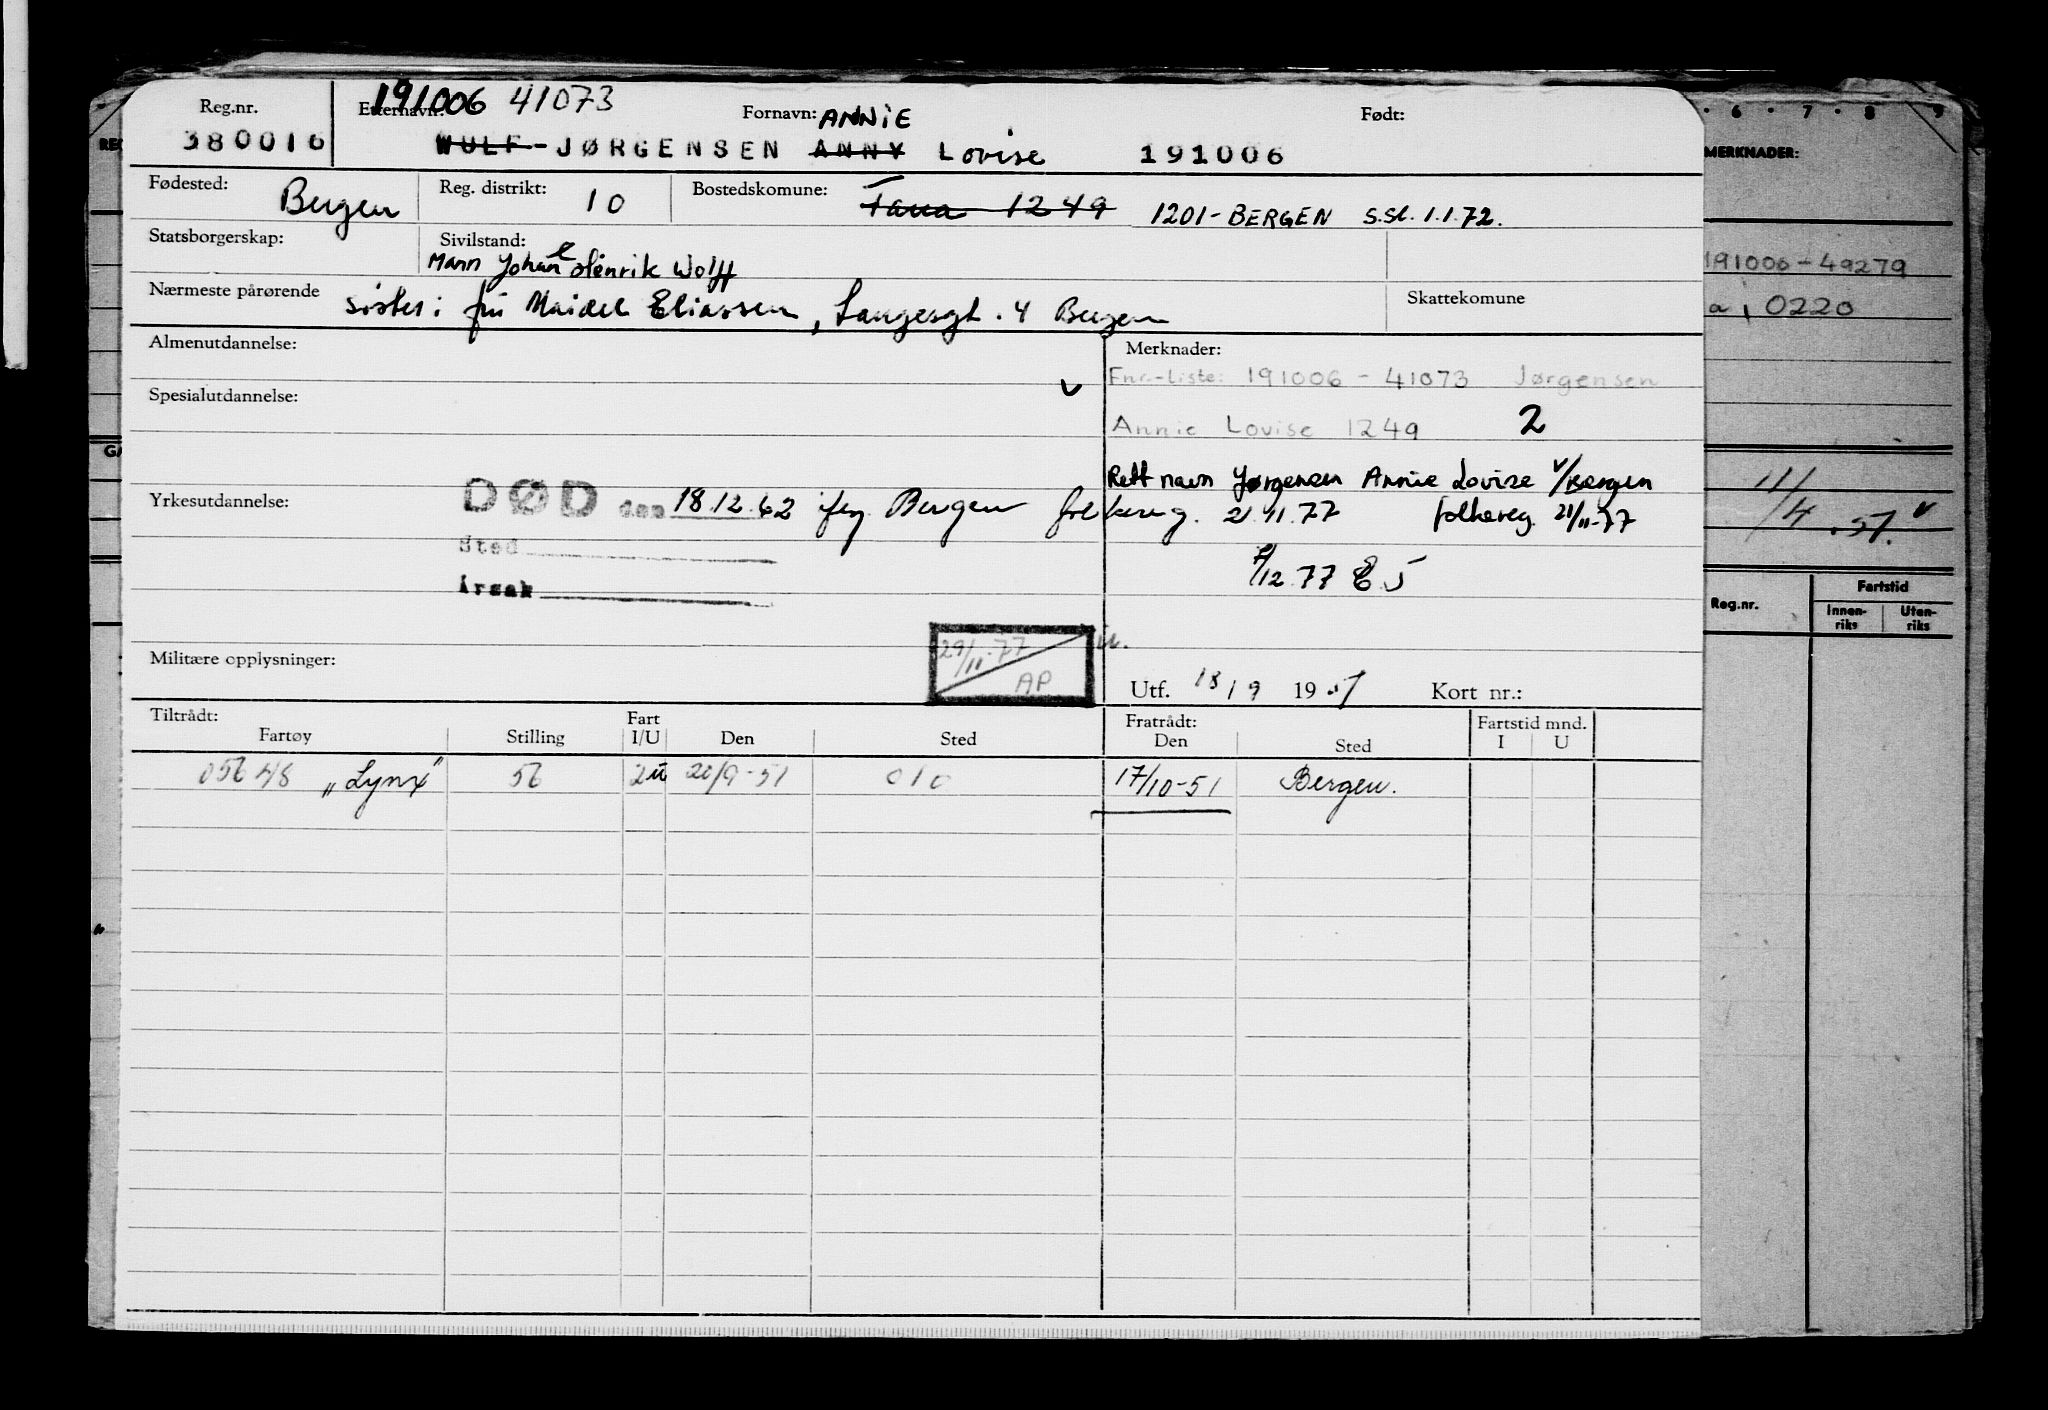 Reg.nr. Etternavn: 191006 41073 Fornavn: ANNIE Født:
380016 WULF-JØRGENSEN ANNY Lovise 191006
Fødested: Bergen Reg. distrikt: 10 Bostedskomune: Fana 1249 1201-BERGEN s.sl. 1.1.72.
Statsborgerskap: Sivilstand:
Mann Johan Henrik Wolff
Nærmeste pårørende søster: fru Maidel Eliassen, Langesgt. 4 Bergen Skattekomune
Almenutdannelse: Merknader:
Fnr.-Liste: 191006 - 41073 Jørgensen
Spesialutdannelse:
Annie Lovise 1249 2
Rett navn Jørgensen Annie Lovise v/Bergen
Yrkesutdannelse: DØD den 18.12.62 iføg Bergen folkereg. 21.11.77 folkereg. 21/11-77
Sted
Årsak
7/12.77 EJ
29/11-77
AP
Militære opplysninger:
Utf. 18/9 1951 Kort nr.:
Tiltrådt: Fratrådt: Fartstid mnd.
Fartøy Stilling Fart I/U Den Sted Den Sted I U
05648 "Lynx" 56 2u 20/9-51 010 17/10-51 Bergen.
6 7 8 9
MERKNADER:
191006-49279
0220
11/4.57.
Reg.nr. Fartstid
Innen-riks Uten-riks